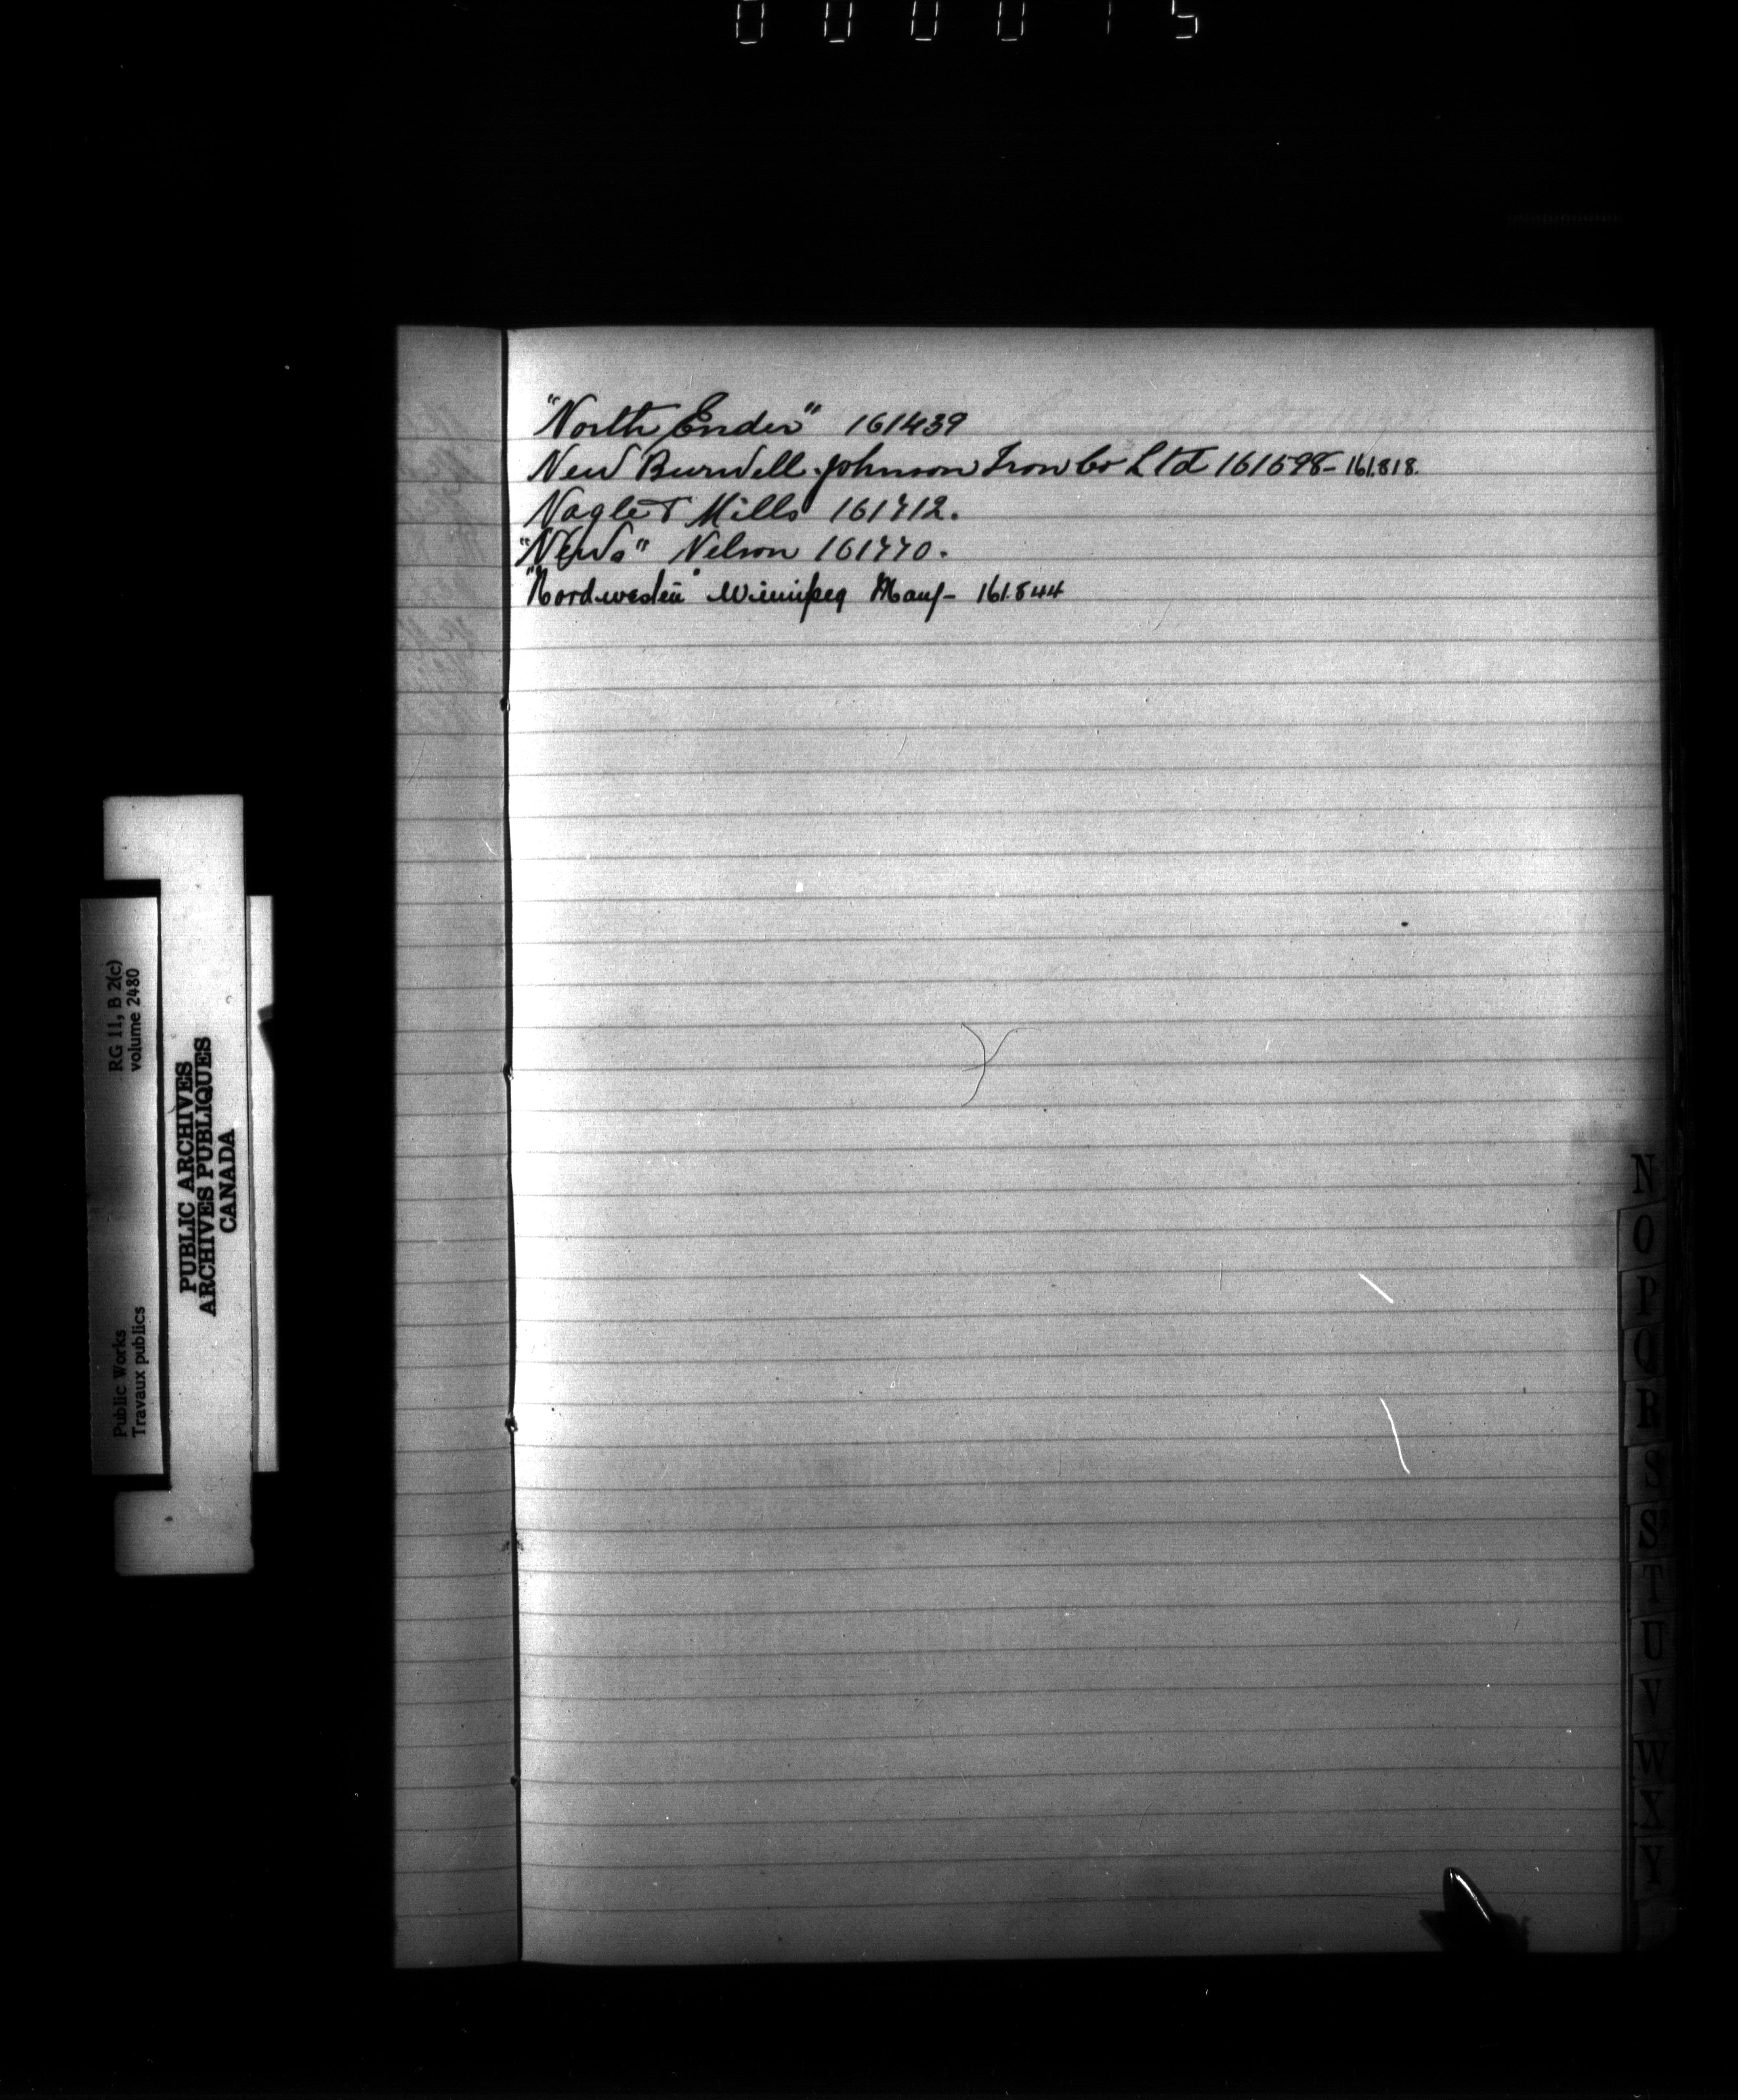 000015
"North Ender" 161439
New Burrell Johnson Iron Co Ltd 161598-161.818.
Nagle & Mills 161712.
"News" Nelson 161770.
"Nordwesten" Winnipeg Man- 161.844
RG 11, B 2(c)
volume 2480
Public Works
Travaux publics
PUBLIC ARCHIVES
ARCHIVES PUBLIQUES
CANADA
N
O
P
Q
R
S
S
T
U
V
W
X
Y